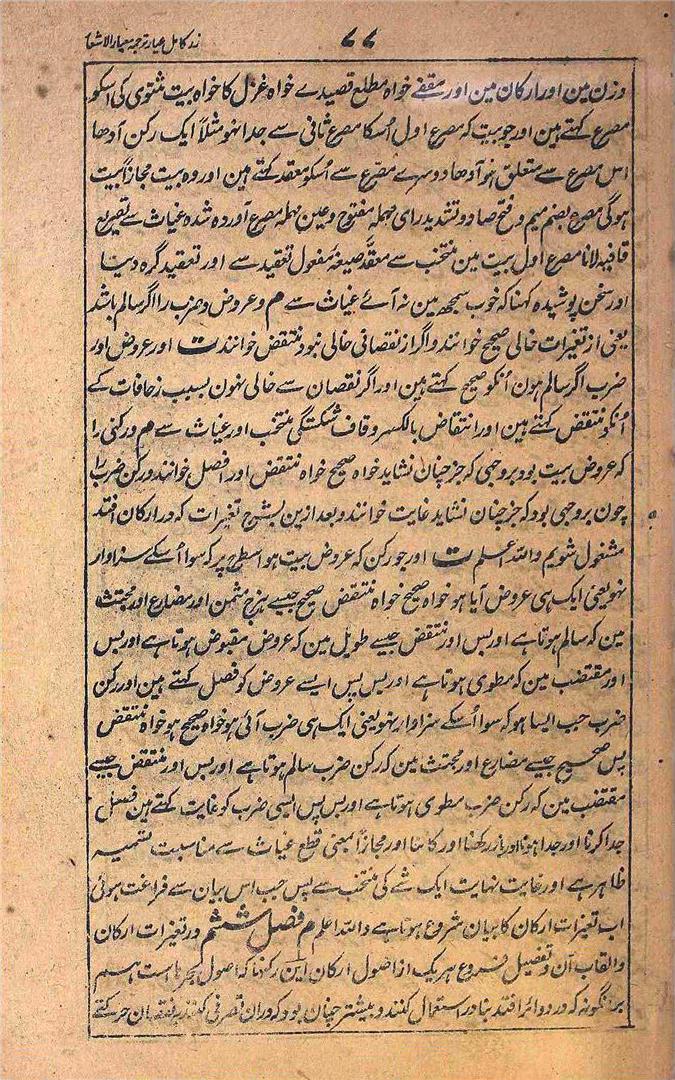 زر کامل عیار ترجمہ معیار الاشعار
۷۷
وزن مین اور ارکان مین اور مقفے خواہ مطلع قصیدے خواہ غزل کا خواہ بیت مثنوی کی اسکو
مصرع کہتے ہین اور جو بیت کہ مصرع اول اُسکا مصرع ثانی سے جدا نہو مثلاً ایک رکن آدھا
اس مصرع سے متعلق ہو آدھا دوسرے مصرع سے اُسکو معقد کہتے ہین اور وہ بیت مجازاً بیت
ہوگی مصرع بضم میم و فتح صاد و تشدید رای مہملہ مفتوح و عین مہملہ مصرع آوردہ شدہ غیاث سے تصریع
قافیہ لانا مصرع اول بیت مین منتخب سے معقَّد صیغۂ مفعول تعقید سے اور تعقید گرہ دینا
اور سخن پوشیدہ کہنا کہ خوب سمجھ مین نہ آئے غیاث سے م و عروض و ضرب را اگر سالم باشد
یعنی از تغیرات خالی صحیح خوانند و اگر از نقصانی خالی نبود منتقض خوانند ت اور عروض اور
ضرب اگر سالم ہون اُنکو صحیح کہتے ہین اور اگر نقصان سے خالی نہون بسبب زحافات کے
اُنکو منتقض کہتے ہین اور انتقاض بالکسر و قاف شکستگی منتخب اور غیاث سے م و رکنی را
کہ عروض بیت بود بروجہی کہ جز چنان نشاید خواہ صحیح خواہ منتقض اور افصل خوانند و رکن ضرب را
چون بروجہی بود کہ جز چنان نشاید غایت خوانند و بعد ازین بشرح تغیرات کہ در ارکان افتد
مشغول شویم واللہ اعلم ت اور جو رکن کہ عروض بیت ہو اسطرح پر کہ سوا اُسکے سزاوار
نہو یعنی ایک ہی عروض آیا ہو خواہ صحیح خواہ منتقض صحیح جیسے ہزج مثمن اور مضارع اور مجتث
مین کہ سالم ہوتا ہے اور بس اور منتقض جیسے طویل مین کہ عروض مقبوض ہوتا ہے اور بس
اور مقتضب مین کہ مطوی ہوتا ہے اور بس پس ایسے عروض کو فصل کہتے ہین اور رکن
ضرب جب ایسا ہو کہ سوا اُسکے سزاوار نہو یعنی ایک ہی ضرب آئی ہو خواہ صحیح ہو خواہ منتقض
پس صحیح جیسے مضارع اور مجتث مین کہ رکن ضرب سالم ہوتا ہے اور بس اور منتقض جیسے
مقتضب مین کہ رکن ضرب مطوی ہوتا ہے اور بس پس ایسی ضرب کو غایت کہتے ہین فصل
جدا کرنا اور جدا ہونا اور باز رکھنا اور کاٹنا اور مجازاً بمعنی قطع غیاث سے مناسبت تسمیہ
ظاہر ہے اور غایت نہایت ایک شے کی منتخب سے پس جب اس بیان سے فراغت ہوئی
اب تغیرات ارکان کا بیان شروع ہوتا ہے واللہ اعلم م فصل ششم در تغیرات ارکان
و القاب آن و تفصیل فروع ہریک از اصول ارکان این رکنہا کہ اصول بحرہا است ہم
برانگونہ کہ در دوائر افتد بنادر استعمال کنند و بیشتر چنان بود کہ دران تصرفی کنند بنقصان حرکتے